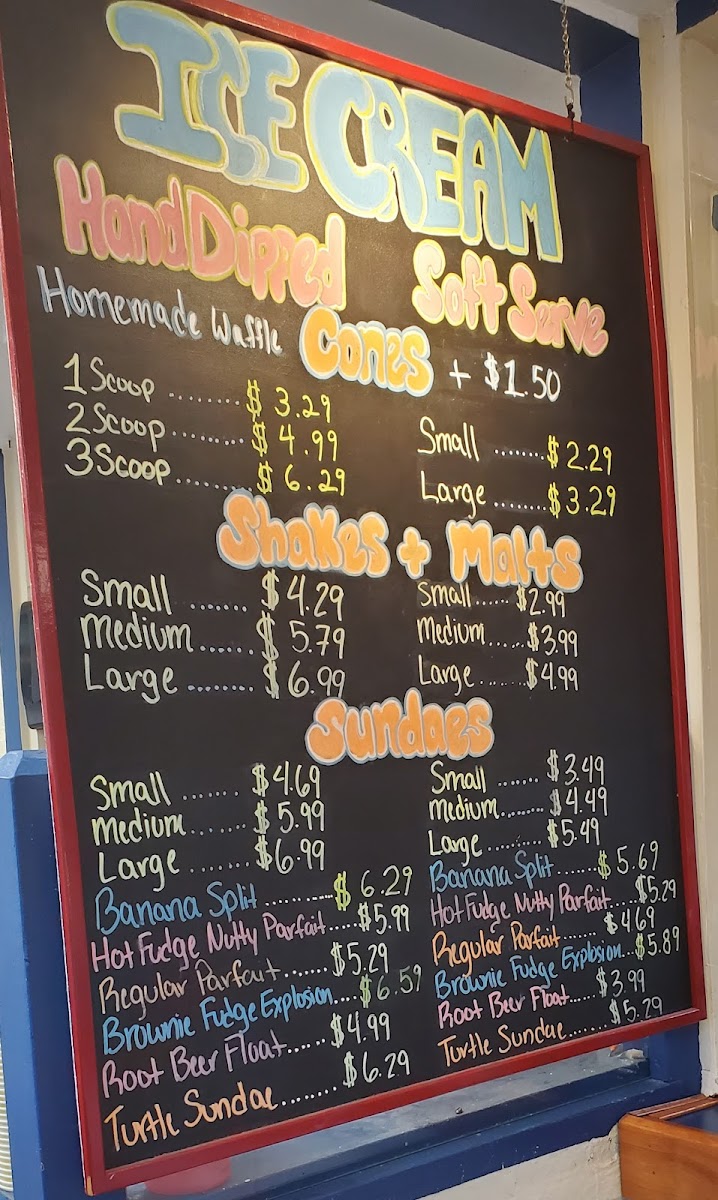 ICE CREAM
Hand Dipped
Soft Serve
Homemade Waffle Cones + $1.50
1 Scoop ........ $ 3.29
2 Scoop ........ $ 4.99
3 Scoop ........ $ 6.29
Small ....... $ 2.29
Large ........ $ 3.29
Shakes + Malts
Small ....... $ 4.29
Medium ...... $ 5.79
Large ........ $ 6.99
Small ...... $2.99
Medium ...... $3.99
Large ....... $4.99
Sundaes
Small ....... $4.69
Medium ...... $5.99
Large ....... $6.99
Banana Split .......... $ 6.29
Hot Fudge Nutty Parfait .... $5.99
Regular Parfait ...... $5.29
Brownie Fudge Explosion .... $6.59
Root Beer Float ...... $4.99
Turtle Sundae ........ $6.29
Small ....... $3.49
Medium ...... $4.49
Large ........ $5.49
Banana Split ...... $ 5.69
Hot Fudge Nutty Parfait .... $5.29
Regular Parfait ...... $4.69
Brownie Fudge Explosion ... $5.89
Root Beer Float ..... $3.99
Turtle Sundae ....... $5.29